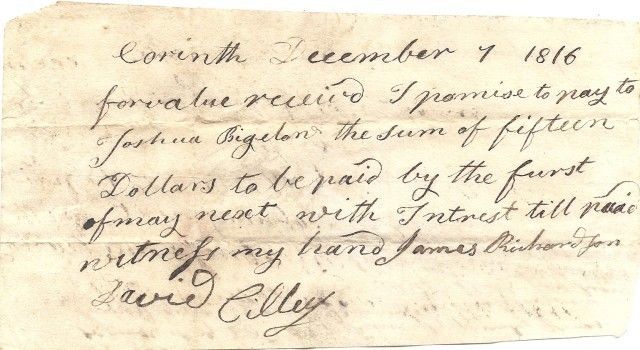 Corinth December 7 1816
for value receivd I pomise to pay to
Joshua Bigelow the sum of fifteen
Dollars to be paid by the furst
of may next with Intrest till paid
witness my hand James Richardson
David Cilley